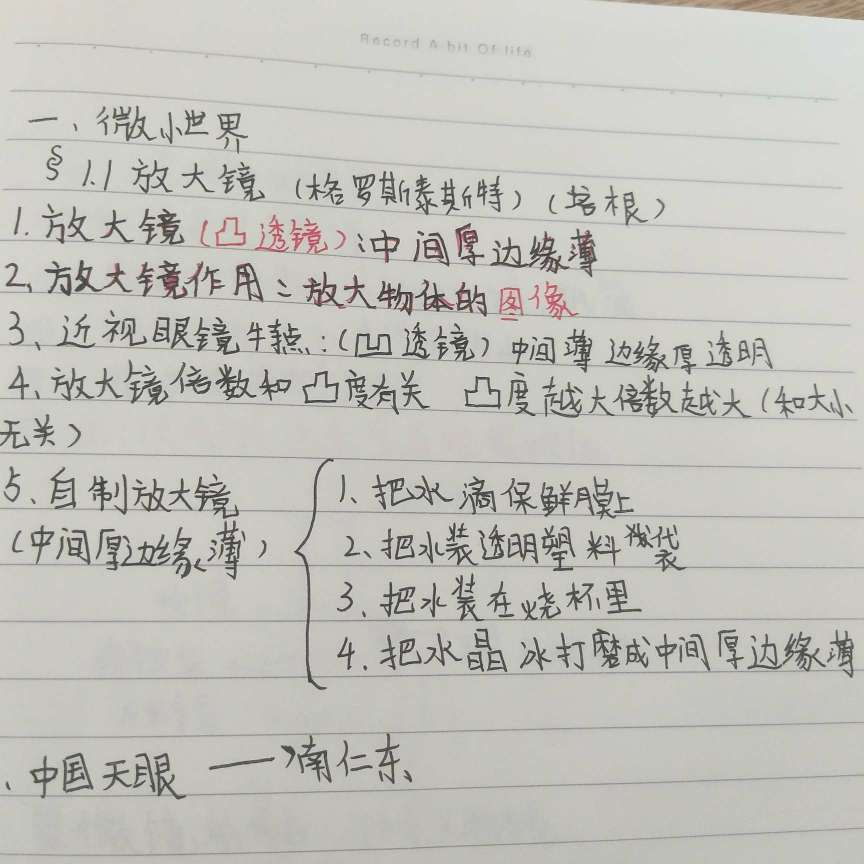 Record A bit Of life
一、微小世界
§ 1.1 放大镜（格罗斯泰斯特）（培根）
1. 放大镜（凸透镜）：中间厚边缘薄
2、放大镜作用：放大物体的图像
3、近视眼镜特点：（凹透镜）中间薄 边缘厚 透明
4、放大镜倍数和凸度有关 凸度越大倍数越大（和大小
无关）
5、自制放大镜
（中间厚边缘薄）
1、把水滴保鲜膜上
2、把水装透明塑料袋
3、把水装在烧杯里
4、把水晶冰打磨成中间厚边缘薄
、中国天眼 → 南仁东